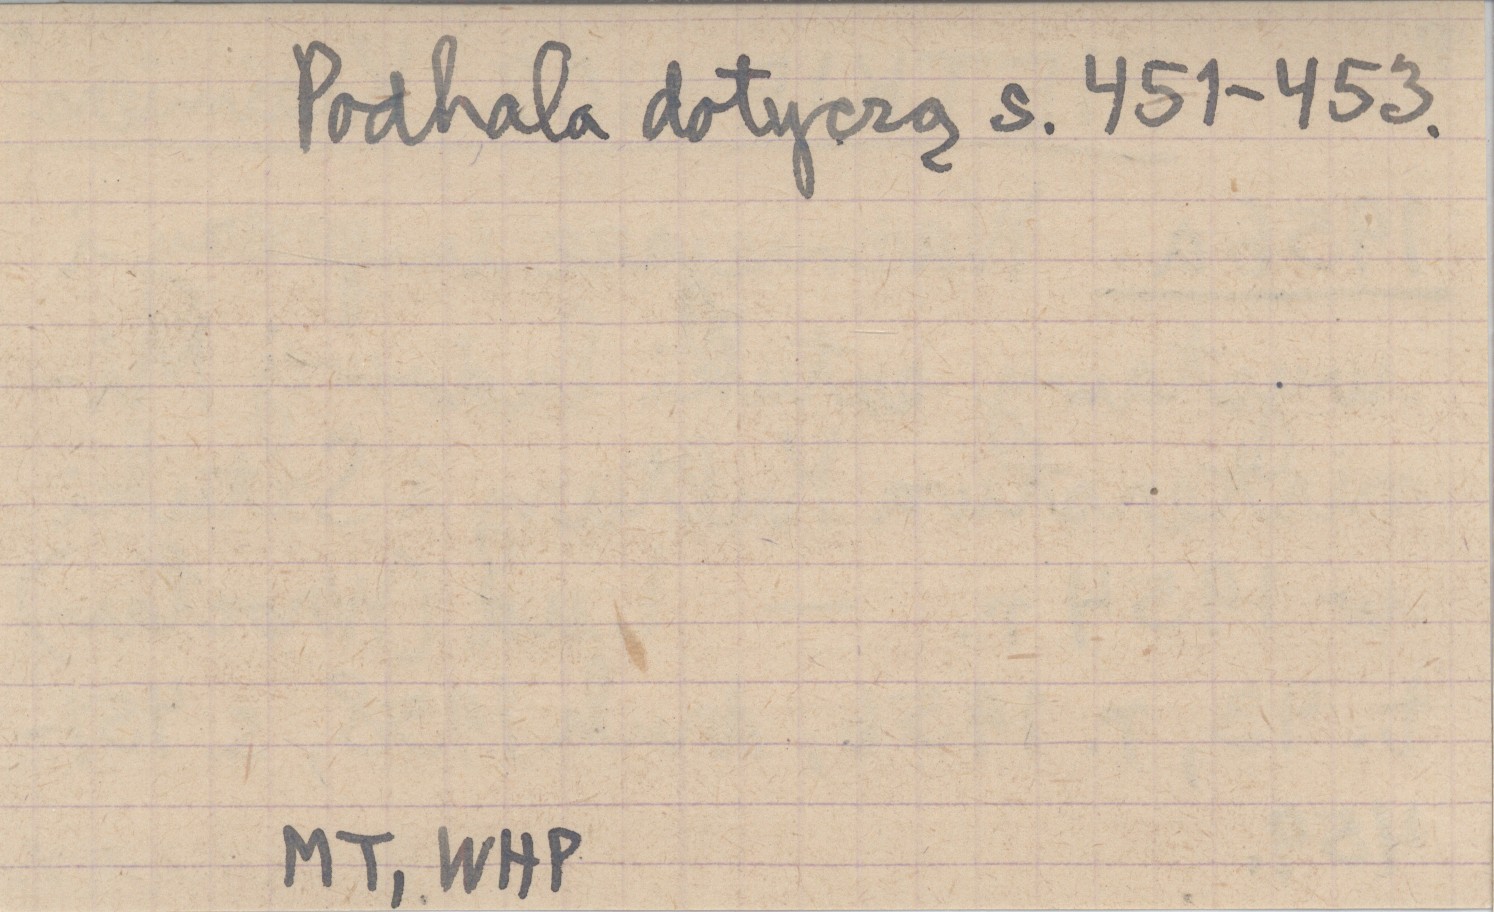 Podhala dotyczą s. 451-453.
MT, WHP